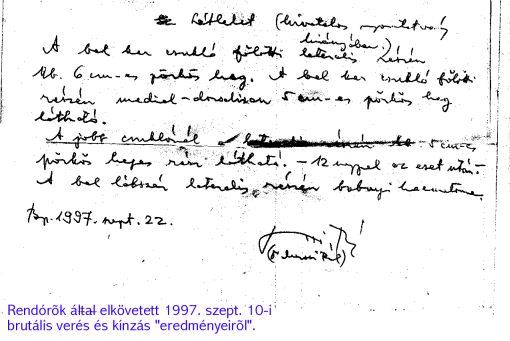 Látlelet (hivatalos nyomtatvány
hiányában)
A bal kar csukló fölötti lateralis részén
kb. 6 cm-es pörkös heg. A bal kar csukló fölötti
részén medial-dorsalisan 5 cm-es pörkös heg
látható.
A jobb csuklónál a 5 cm-es
pörkös heges rész látható. – 12 nappal az eset után. –
A bal lábszár lateralis részén babnyi haematoma.
Bp. 1997. szept. 22.
Rendórõk által elkövetett 1997. szept. 10-i
brutális verés és kínzás "eredményeirõl".